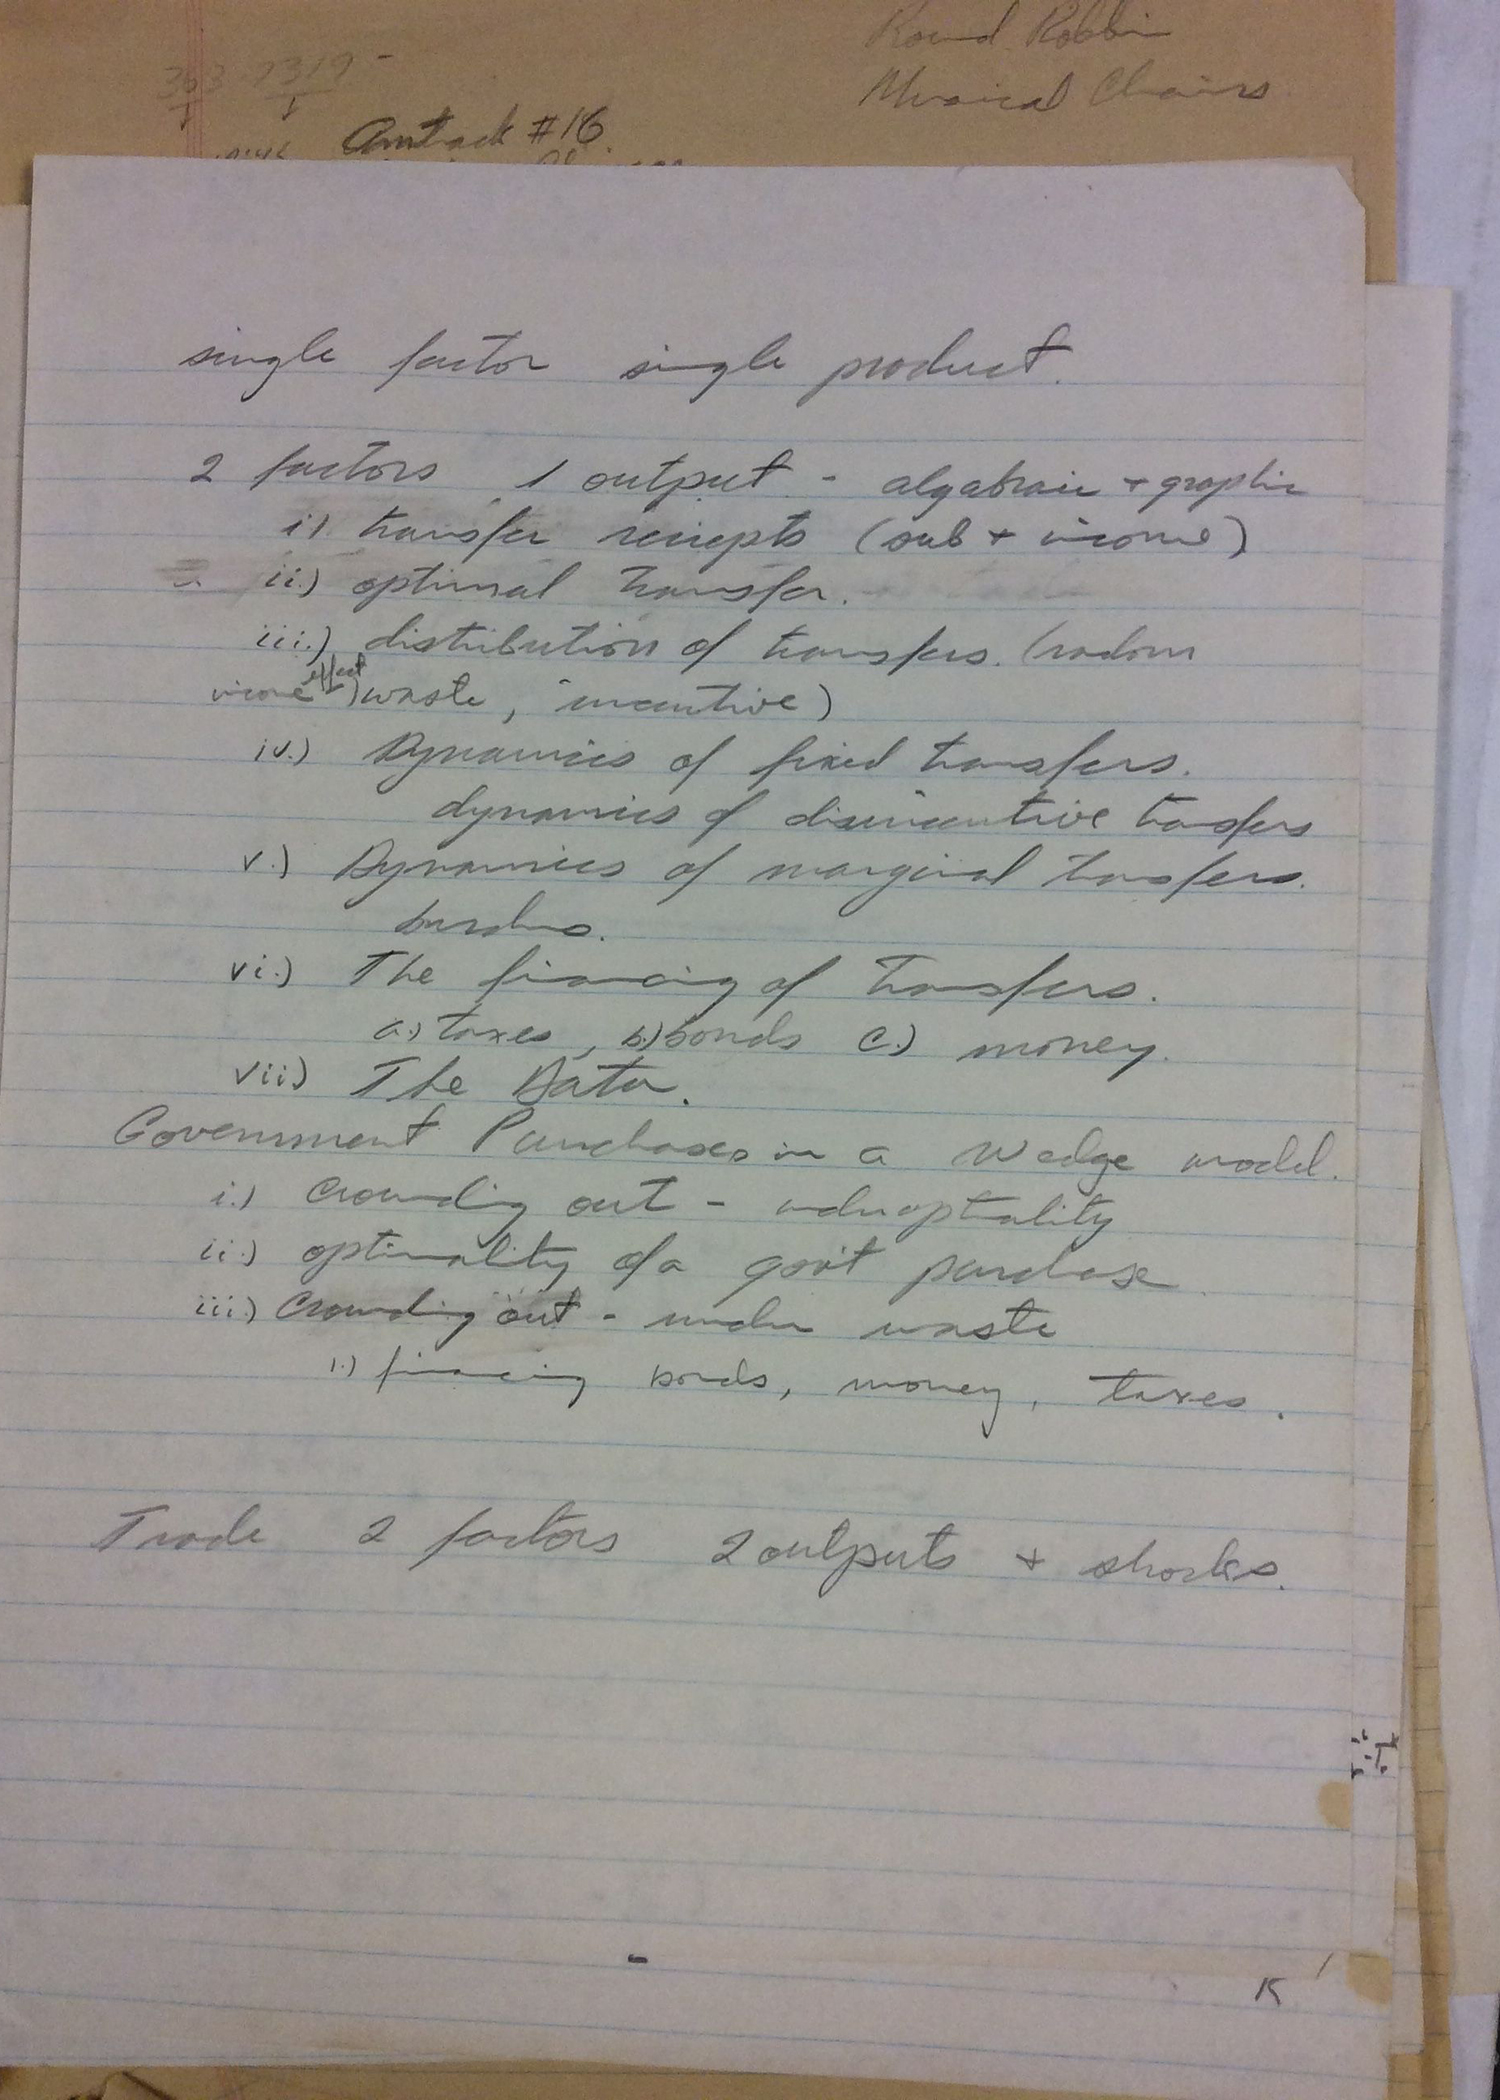 Round Robbin
Musical Chairs
363-7319-
Amtrack #16
single factor single product.
2 factors 1 output - algabraic + graphic
i) transfer reciepts (sub + income)
ii.) optimal transfer.
iii.) distribution of transfers. (radom
income effect) waste, incentive)
iv.) Dynamics of fixed transfers.
dynamics of disincentive transfers
v.) Dynamics of marginal transfers.
burdens.
vi.) The financing of transfers.
a.) taxes, b.) bonds c.) money.
vii) The Data.
Government Purchases in a Wedge model.
i.) Crowding out - under optimality
ii.) optimality of a gov't purchase
iii.) Crowding out - under waste
1.) financing bonds, money, taxes.
Trade 2 factors 2 outputs + shocks.
K